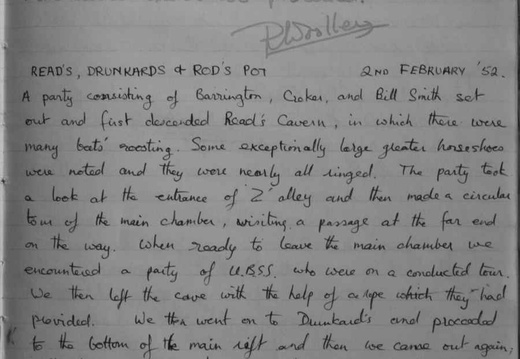 RWoollery
READ'S, DRUNKARDS & ROD'S POT 2ND FEBRUARY '52.
A party consisting of Barrington, Croker, and Bill Smith set
out and first descended Read's Cavern, in which there were
many bats' roosting. Some exceptionally large greater horseshoes
were noted and they were nearly all ringed. The party took
a look at the entrance of 'Z' alley and then made a circular
tour of the main chamber, visiting a passage at the far end
on the way. When ready to leave the main chamber we
encountered a party of U.B.S.S. who were on a conducted tour.
We then left the cave with the help of a rope which they had
provided. We then went on to Drunkard's and proceeded
to the bottom of the main rift and then we came out again;